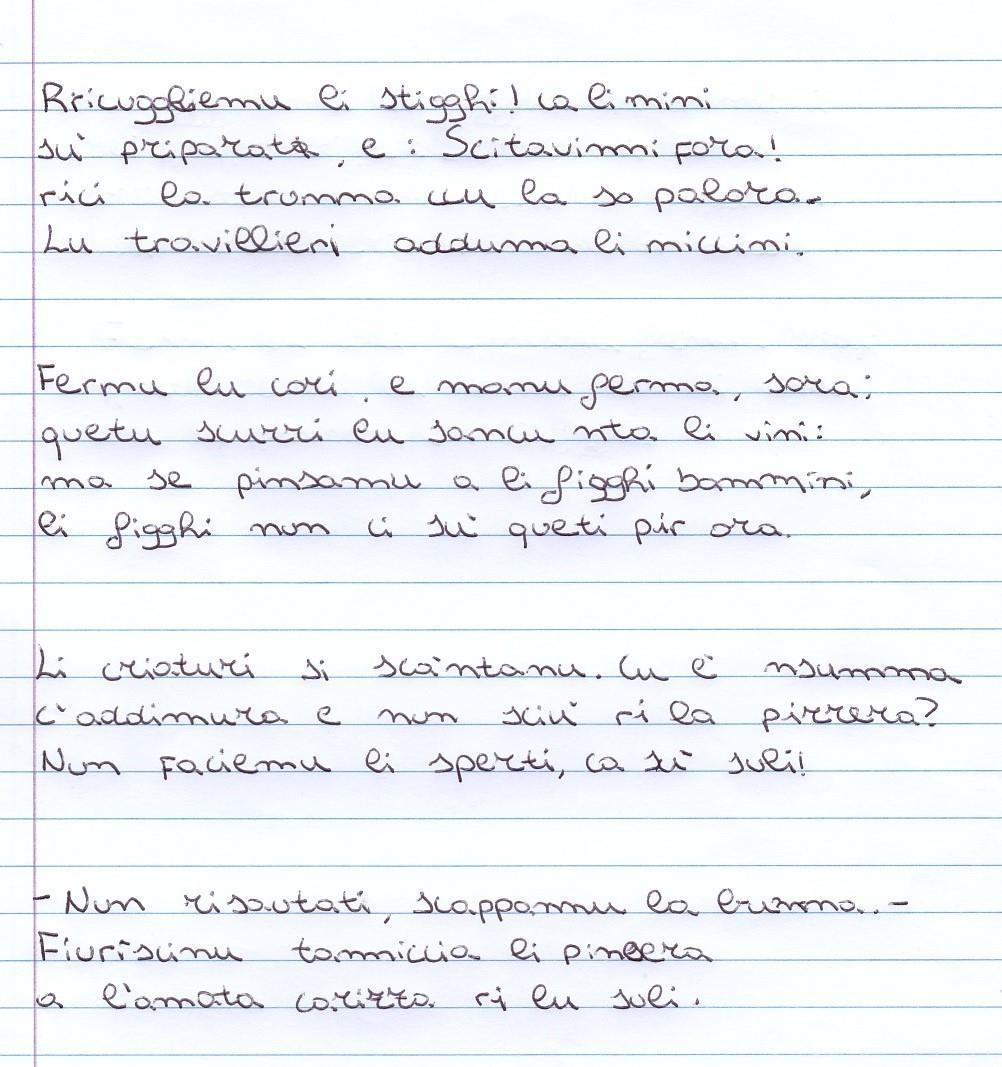 Rricuggliemu li stigghi! ca li mini
su' priparati, e: Scitavinni fora!
rici la trumma cu la so palora.
Lu travillieri adduma li miccini.
Fermu lu cori, e manu ferma, sora;
quetu scurri lu sancu nta li vini:
ma se pinsamu a li figghi bammini,
li figghi nun ci su' queti pir ora.
Li criaturi si scàntanu. Cu è nsumma
c'addimura e nun sciu' ri la pirrera?
Nun faciemu li sperti, ca sì suli!
- Nun risautati, scappammu la brumma. -
Fiuriscinu tanniccia li pinsera
a l'amata carizza ri lu suli.